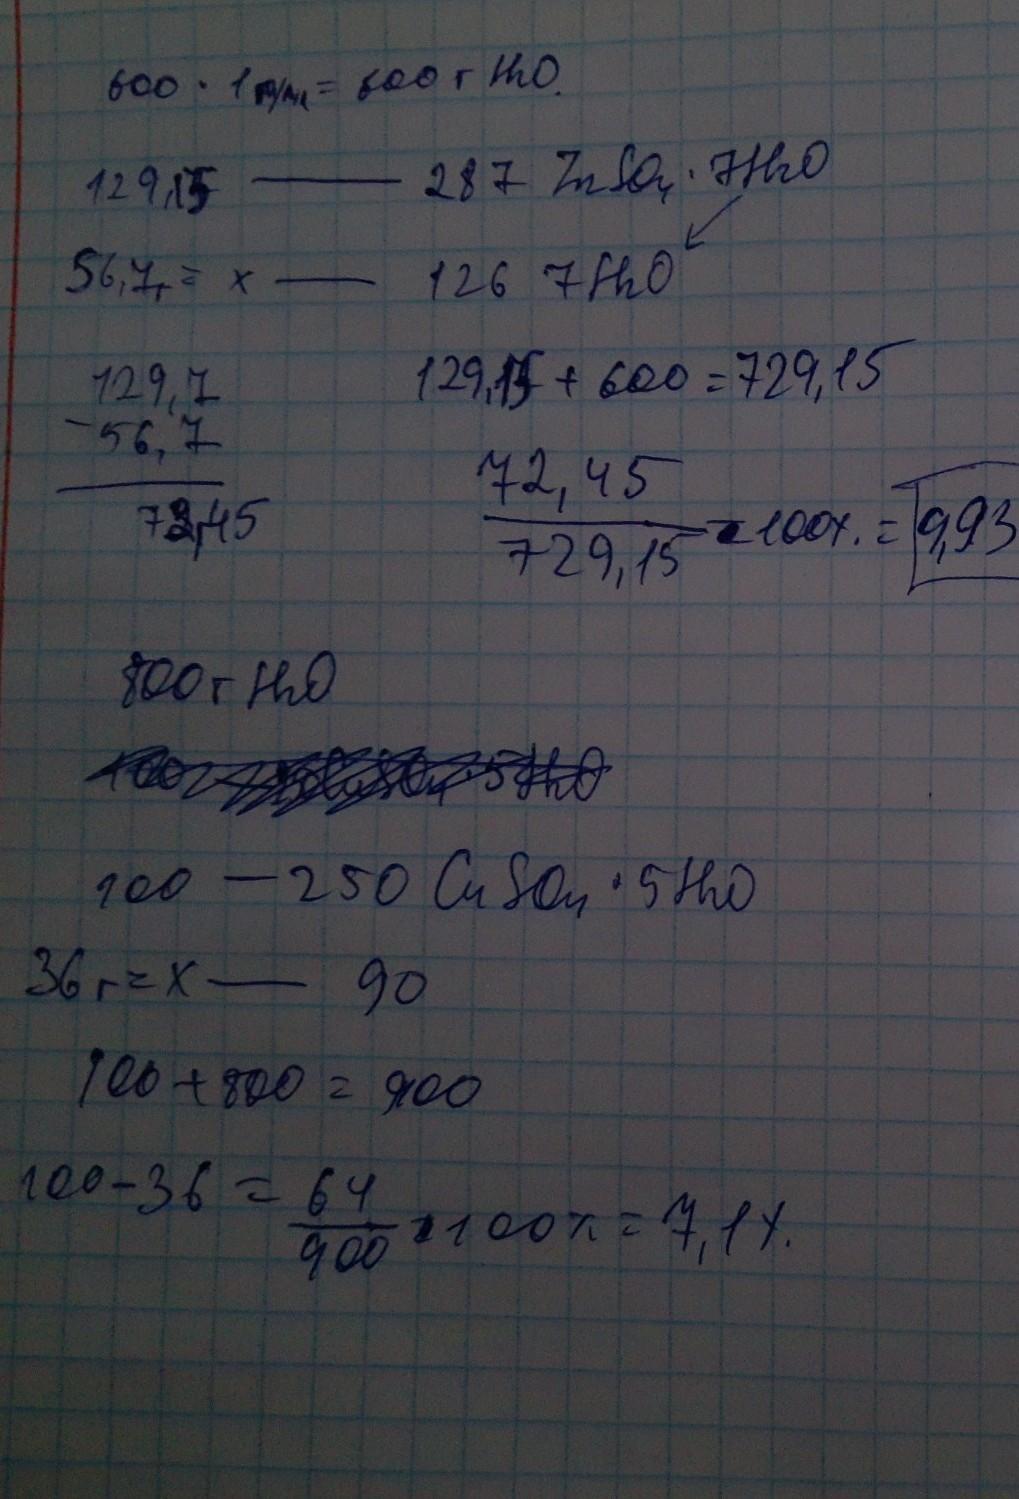 600 · 1 г/мл = 600 г H2O.
129,15 — 287 ZnSO4 · 7H2O
56,7г = x — 126 7H2O
129,7
129,15 + 600 = 729,15
- 56,7
72,45
72,45
729,15 · 100% = 9,93
800 г H2O
100 — 250 CuSO4 · 5H2O
36 г = x — 90
100 + 800 = 900
100 - 36 = 64
900 · 100% = 7,1%.